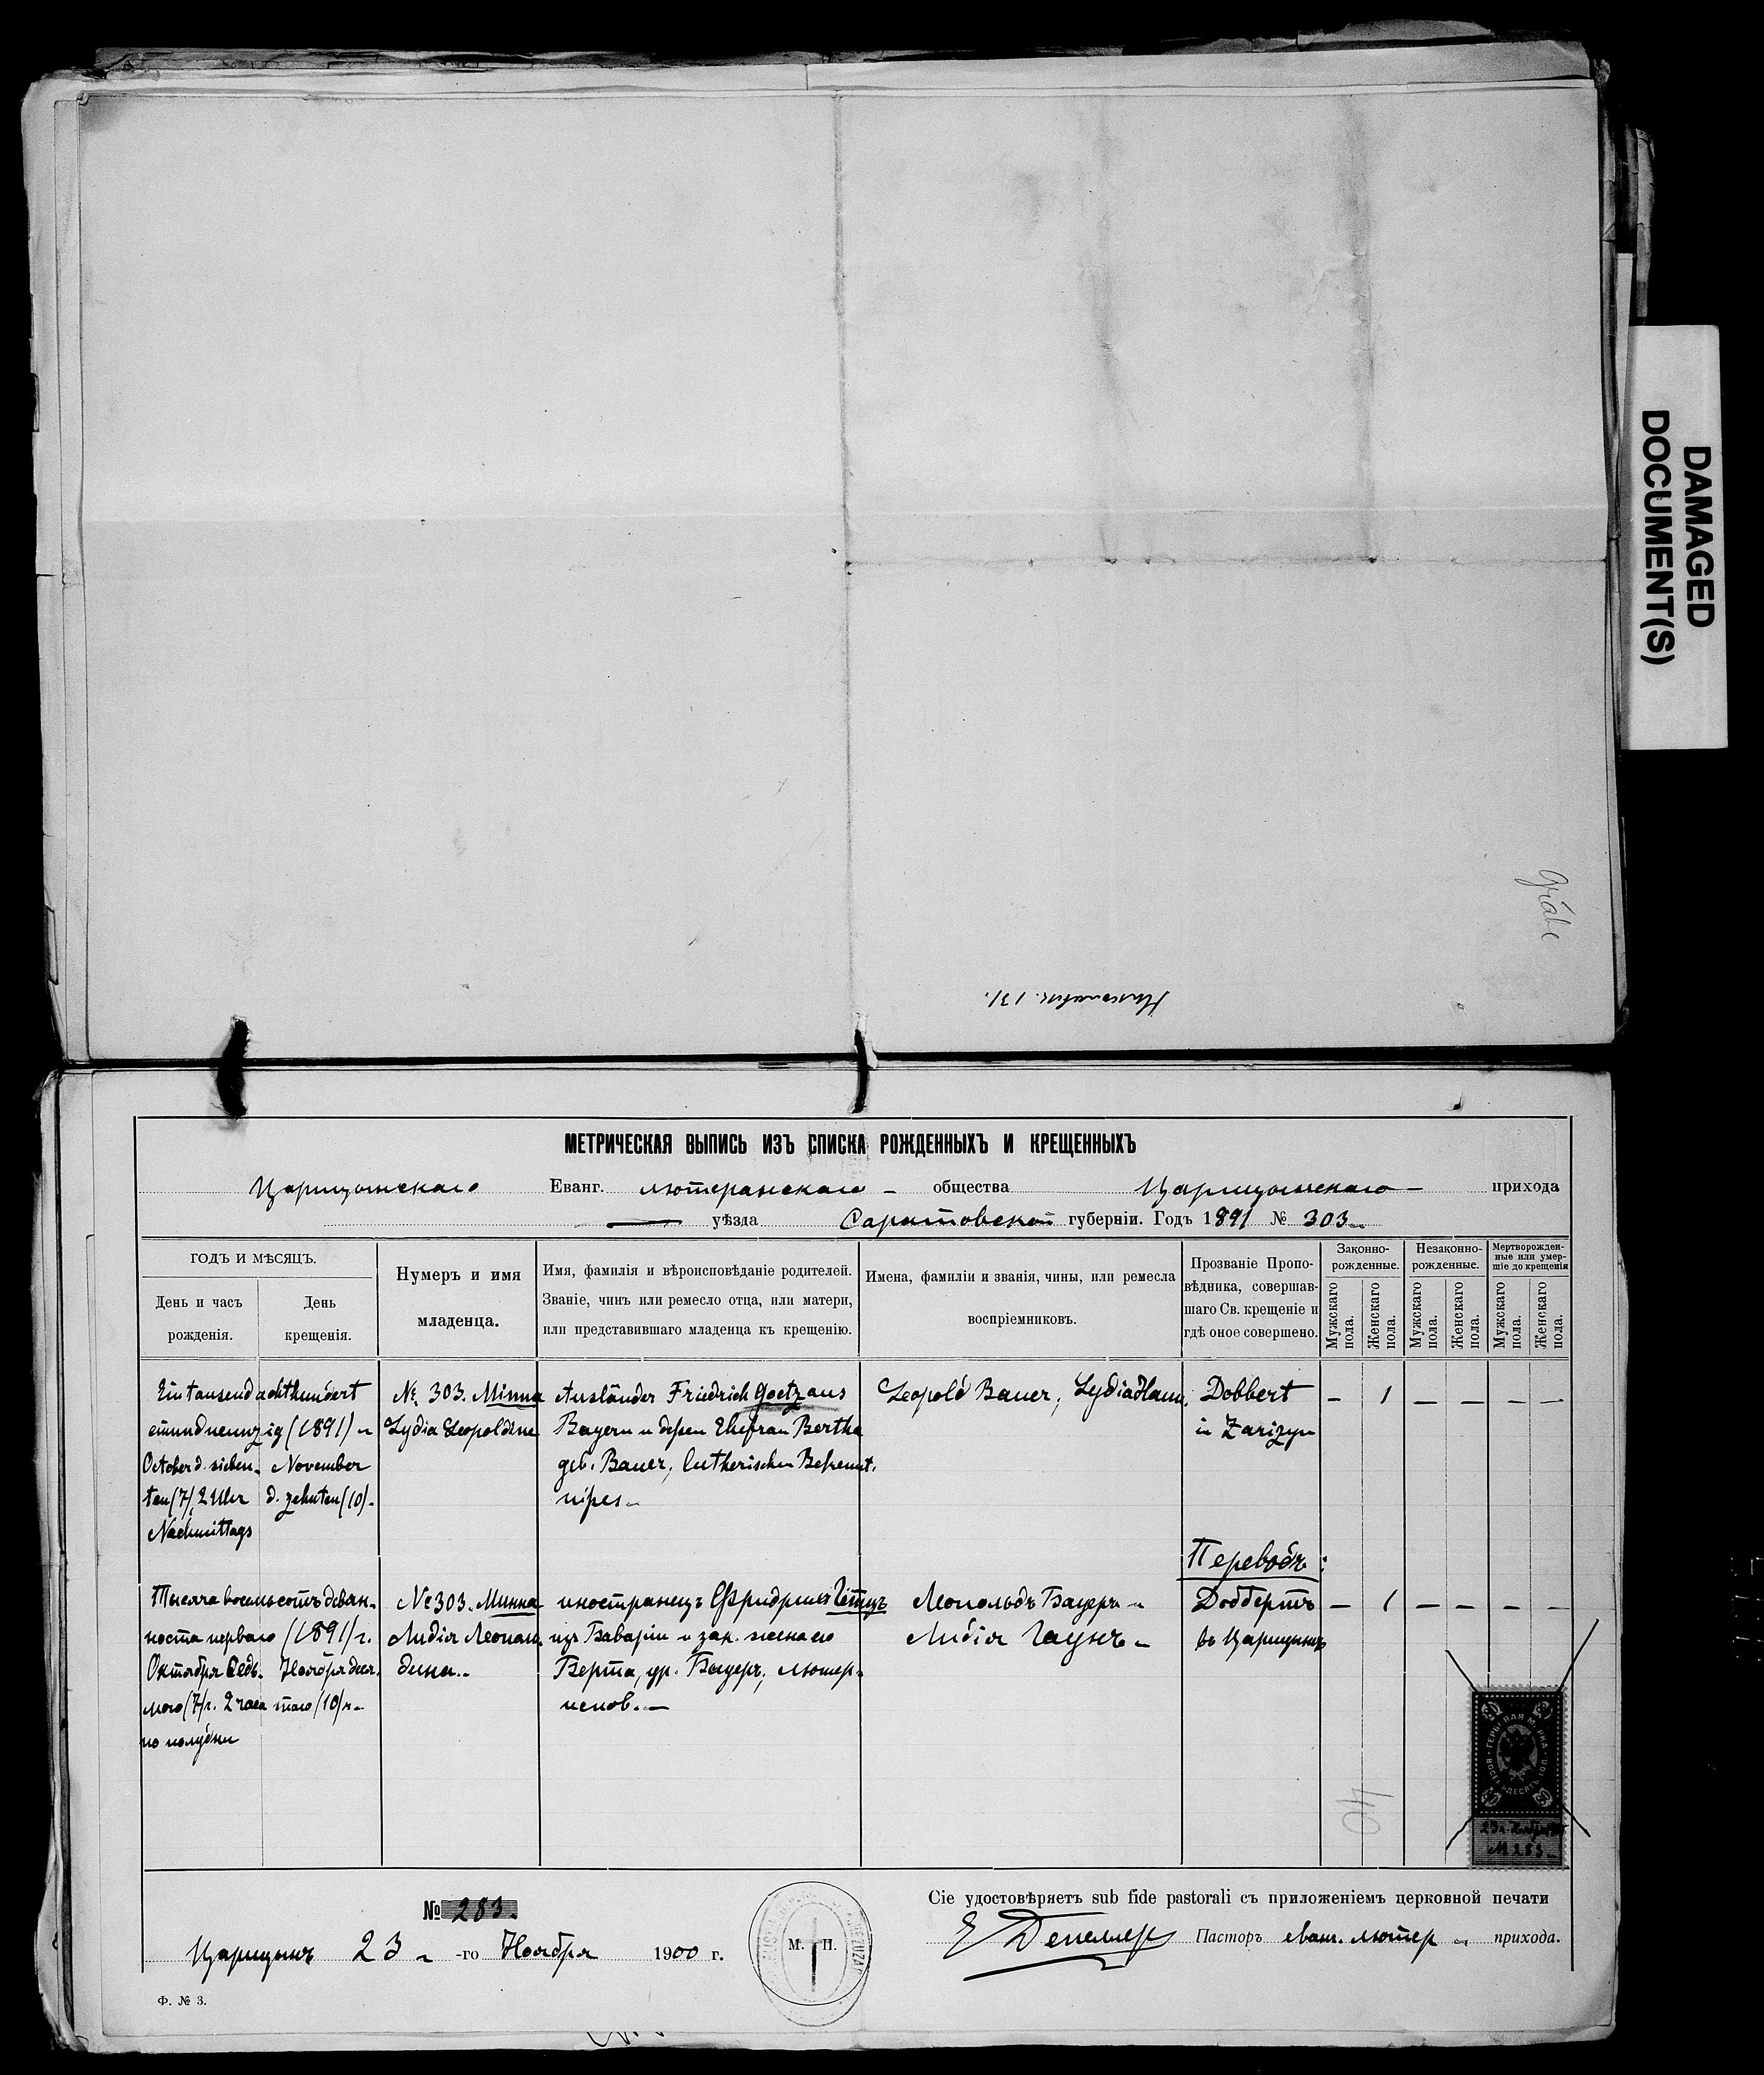 DAMAGED
DOCUMENT(S)
Gräbe
МЕТРИЧЕСКАЯ ВЫПИСЬ ИЗЪ СПИСКА РОЖДЕННЫХЪ И КРЕЩЕННЫХЪ
Царицынскаго Еванг. лютеранскаго – общества Царицынскаго – прихода
уѣзда Саратовской губерніи. Годъ 1891 № 303
ГОДЪ И МѢСЯЦЪ.
День и часъ
рожденія.
День
крещенія.
Нумеръ и имя
младенца.
Имя, фамилія и вѣроисповѣданіе родителей.
Званіе, чинъ или ремесло отца, или матери,
или представившаго младенца къ крещенію.
Имена, фамиліи и званія, чины, или ремесла
воспріемниковъ.
Прозваніе Пропо-
вѣдника, совершав-
шаго Св. крещеніе и
гдѣ оное совершено.
Законно-
рожденные.
Незаконно-
рожденные.
Мертворожден-
ные или умер-
шіе до крещенія
Мужскаго
пола.
Женскаго
пола.
Мужскаго
пола.
Женскаго
пола.
Мужскаго
пола.
Женскаго
пола.
Ein tausend achthundert
einundneunzig (1891)
October d. sieben-
ten (7), 2 Uhr
Nachmittags
November
d. zehnten (10).
№ 303. Minna
Lydia Leopoldine
Ausländer Friedrich Goetz aus
Bayern u dessen Ehefrau Bertha
geb. Bauer, lutherischen Bekennt.
nisses
Leopold Bauer, Lydia
Dobbert
in Zarizyn
– 1 – – – –
Переводъ:
Тысяча восемьсотъ девян-
носта перваго (1891) г.
Октября Седь-
мого (7) г. 2 часа
по полудни
Ноября деся-
таго (10) г.
№ 303. Минна
Лидія Леополь-
дина.
иностранецъ Фридрихъ Гётцъ
изъ Баваріи и зак. жена его
Берта, ур. Бауеръ, лютер.
испов. –
Леопольдъ Бауеръ
Лидія Гаунъ
Доббертъ
въ Царицынѣ
– 1 – – – –
40
ГЕРБОВАЯ МАРКА
ВОСЕМЬДЕСЯТЪ КОП.
№ 283.
№ 283.
Царицынъ 23 -го Ноября 1900 г.
М. П.
Сіе удостовѣряетъ sub fide pastorali съ приложеніемъ церковной печати
Пасторъ еванг. лютер прихода.
Ф. № 3.